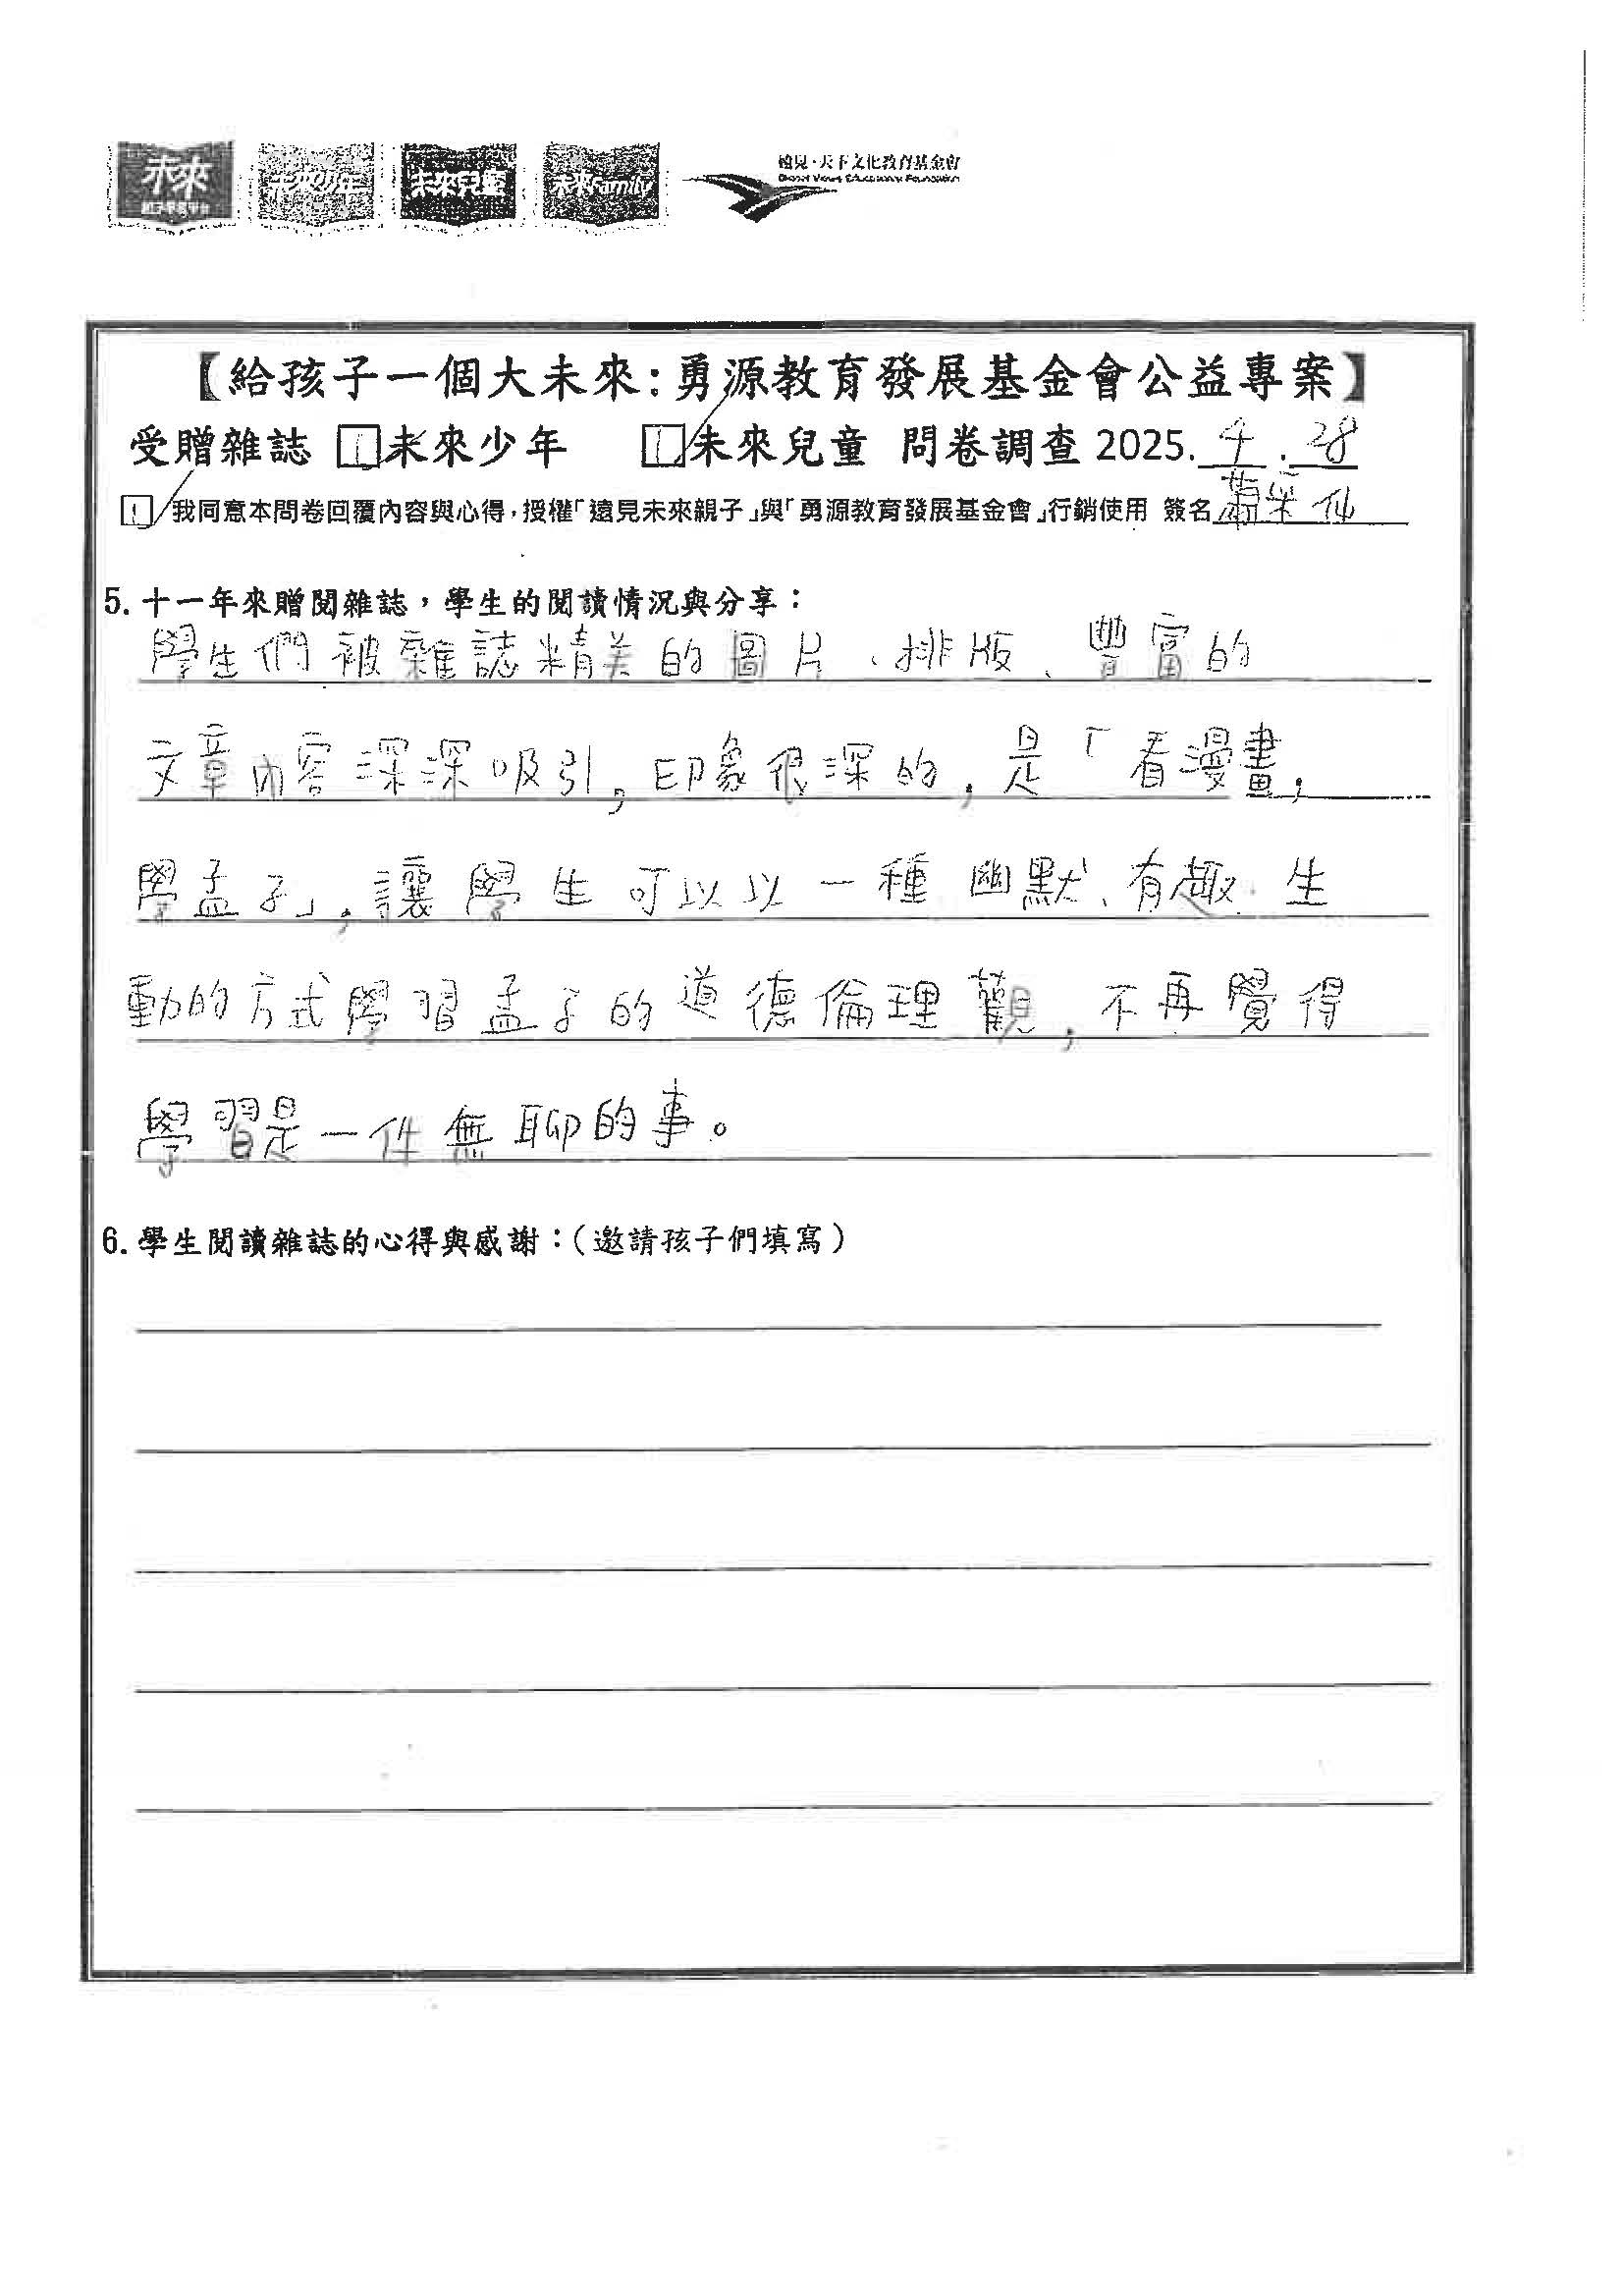 未來
親子學習平台
未來少年
未來兒童
未來Family
遠見・天下文化教育基金會
Global Views Educational Foundation
【給孩子一個大未來:勇源教育發展基金會公益專案】
受贈雜誌 ☑未來少年 ☑未來兒童 問卷調查 2025. 4 . 28
☑我同意本問卷回覆內容與心得,授權「遠見未來親子」與「勇源教育發展基金會」行銷使用 簽名
5. 十一年來贈閱雜誌,學生的閱讀情況與分享:
學生們被雜誌精美的圖片、排版、豐富的
文章內容深深吸引,印象很深的,是「看漫畫,
學孟子」,讓學生可以以一種幽默、有趣、生
動的方式學習孟子的道德倫理觀,不再覺得
學習是一件無聊的事。
6. 學生閱讀雜誌的心得與感謝:(邀請孩子們填寫)